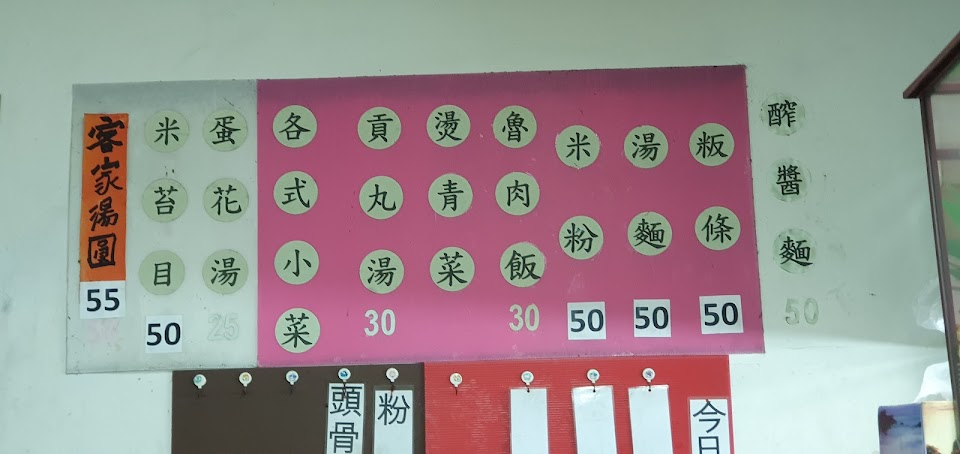 醡醬麵 50
粄條 50
湯麵 50
米粉 50
魯肉飯 30
燙青菜
貢丸湯 30
各式小菜
蛋花湯 25
米苔目 50
客家湯圓 55
今日
粉
頭骨